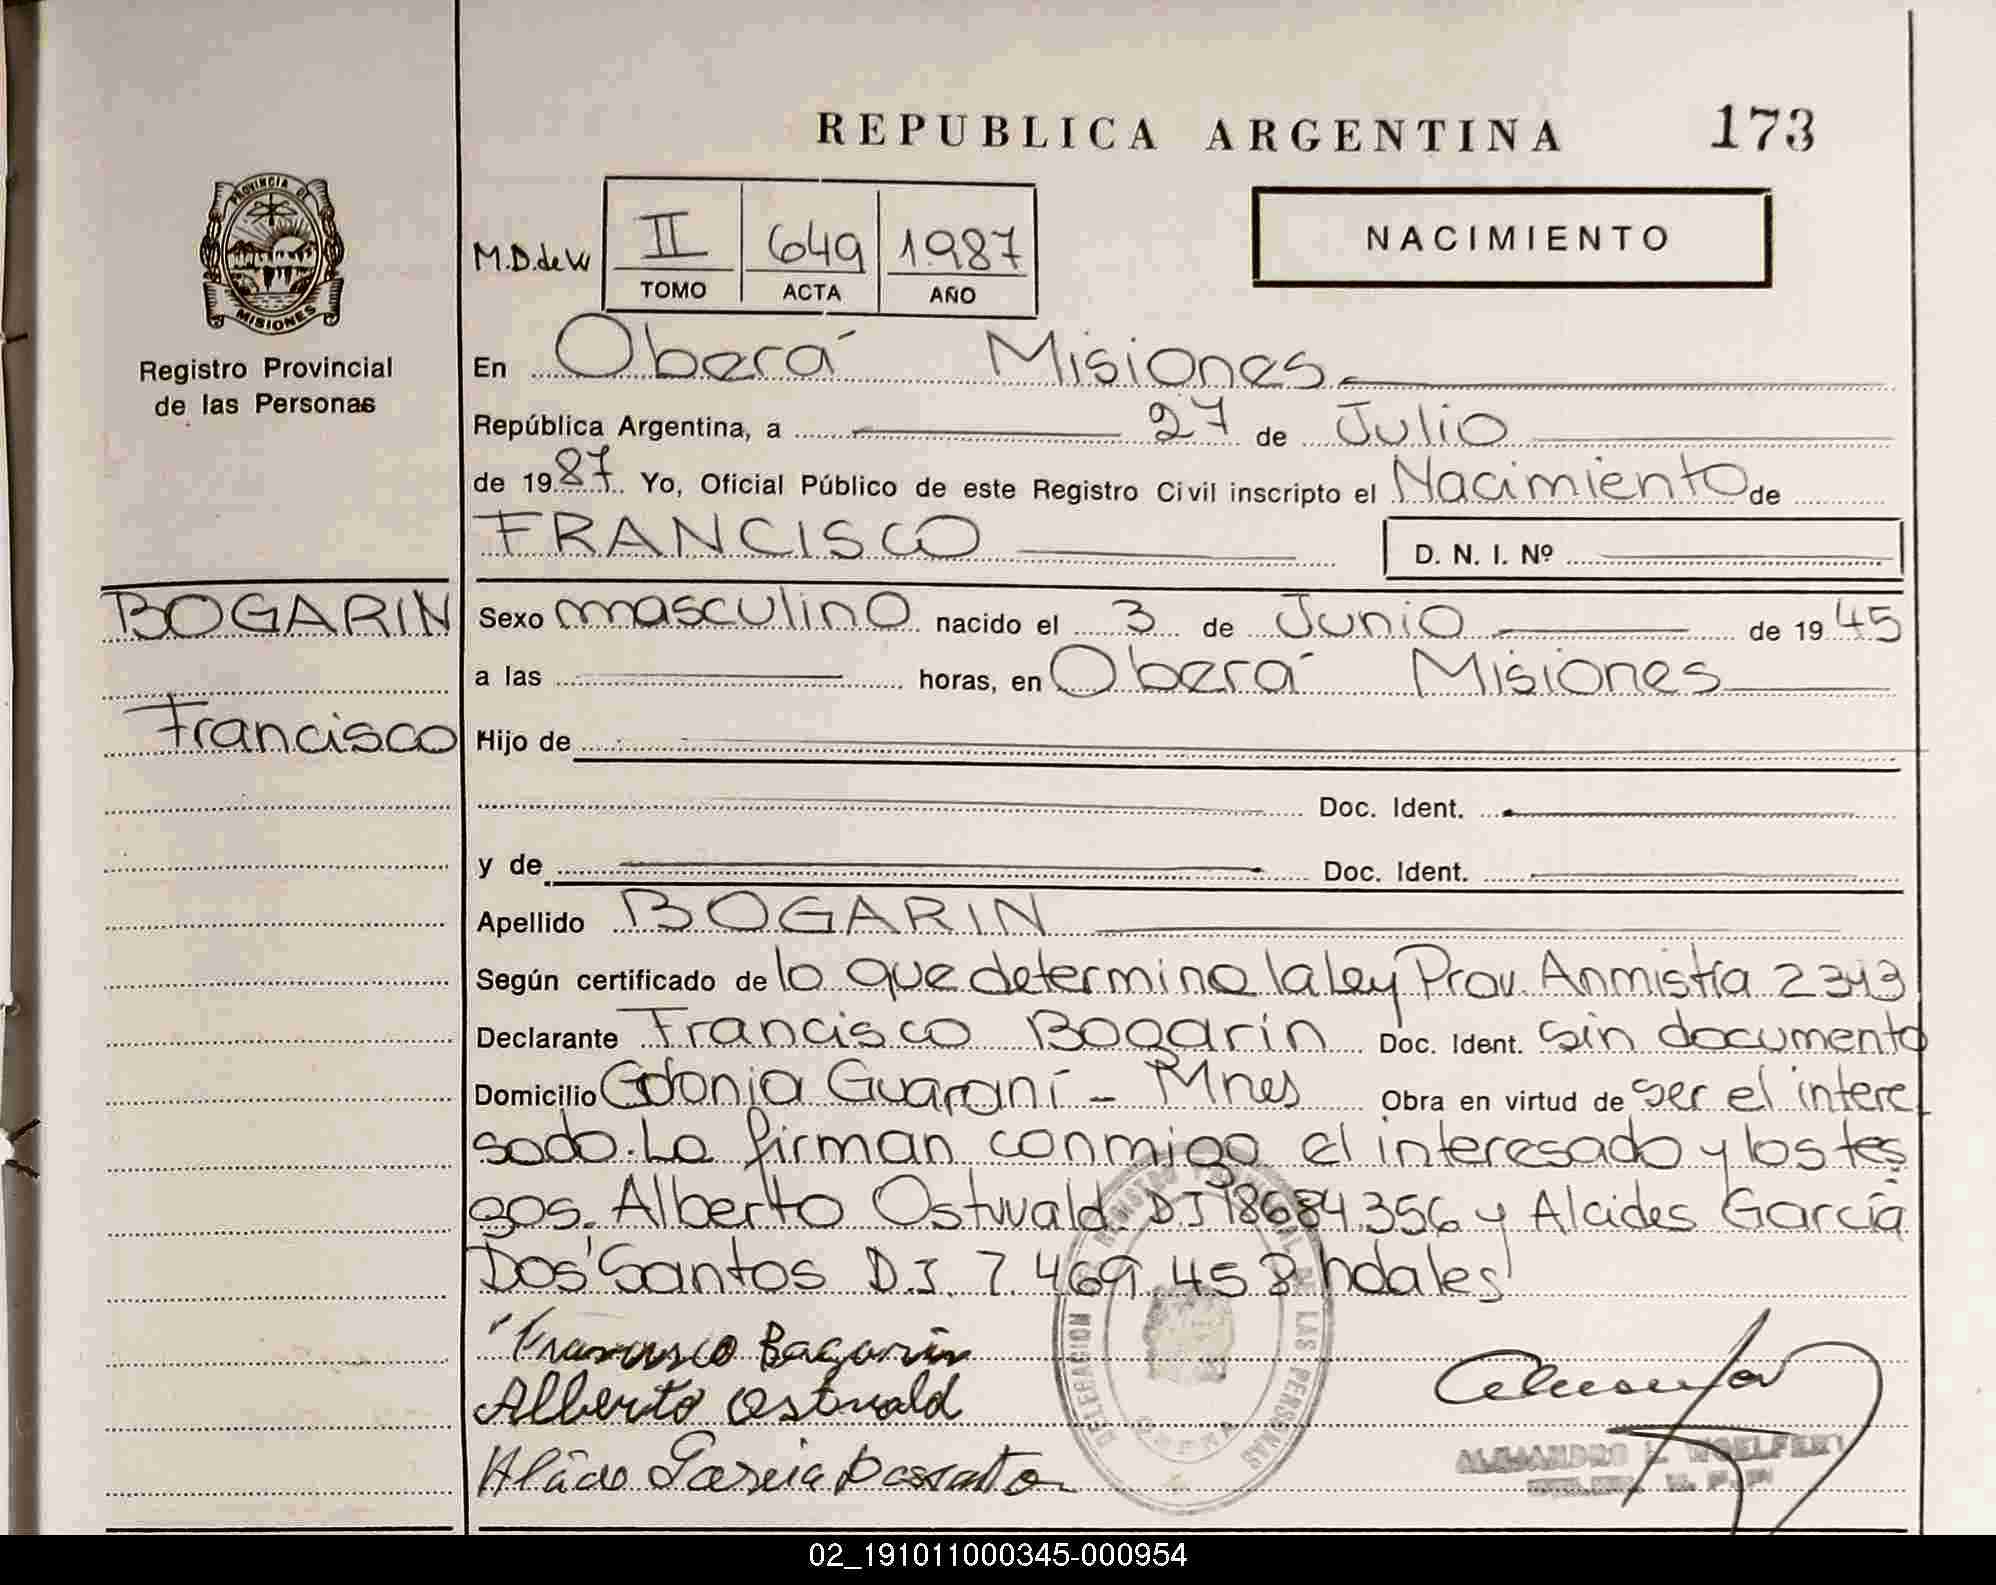 REPUBLICA ARGENTINA 173
PROVINCIA DE
MISIONES
Registro Provincial
de las Personas
M.D.de W
II 649 1987
TOMO ACTA AÑO
NACIMIENTO
En Oberá Misiones
República Argentina, a 27 de Julio
de 1987 Yo, Oficial Público de este Registro Civil inscripto el Nacimiento de
FRANCISCO D. N. I. Nº
BOGARIN
Francisco
Sexo masculino nacido el 3 de Junio de 1945
a las horas, en Oberá Misiones
Hijo de
Doc. Ident.
y de Doc. Ident.
Apellido BOGARIN
Según certificado de lo que determina la ley Prov. Anmistía 2343
Declarante Francisco Bogarin Doc. Ident. Sin documento
Domicilio Colonia Guaraní - Mnes Obra en virtud de ser el intere
sado. La firman conmigo el interesado y los tes
gos. Alberto Ostwald DI 8684.356 y Alcides García
Dos Santos D.I. 7.469.458 hdales
Francisco Bagarin
Alberto Ostwald
Garcia
DELEGACION REGISTRO PROVINCIAL DE LAS PERSONAS
OBERA
ALEJANDRO
02_191011000345-000954